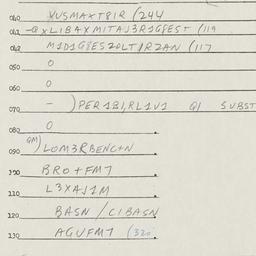 040 XUSMAXT8IR (244
041 -@ XLIBAXMITAJ3R1G8EST (119
042 M1D1G8ES20LT/R2AN (117
050 0
060 0
070 - ) PER1BI,RL1V1 Q1 SUBST
080 0
090 GM) LOM3RBENC+N
100 BRO+FM7
110 L3XAJ1M
120 BASN / CIBASN
130 AGUFM7 (320